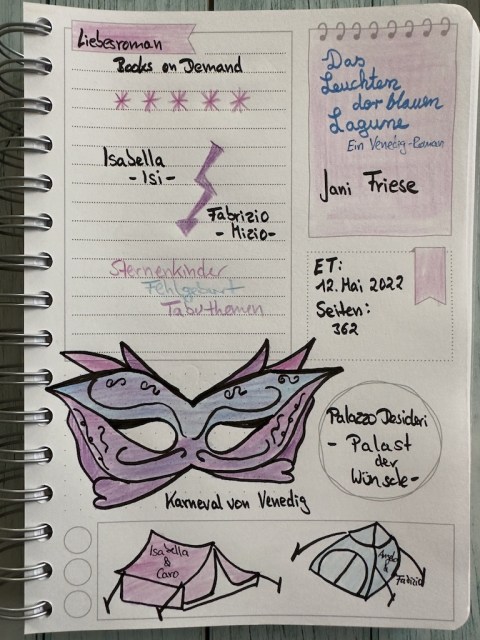 Liebesroman
Books on Demand
Das
Leuchten
der blauen
Lagune
Ein Venedig-Roman
Jani Friese
Isabella
- Isi -
Fabrizio
- Mizio -
Sternenkinder
Fehlgeburt
Tabuthemen
ET:
12. Mai 2022
Seiten:
362
Palazzo Desideri
- Palast
der
Wünsche -
Karneval von Venedig
Isabella
&
Caro
Angelo
&
Fabrizio